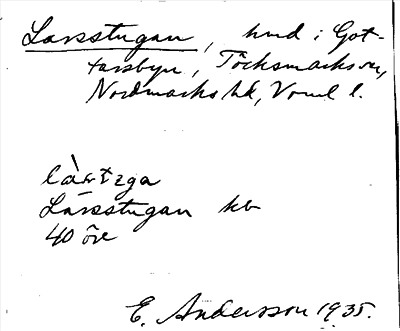 Larsstugan, hmd i Got-
tarsbyn, Töcksmarks sn,
Nordmarks hd, Vrml l.
Larsstugan kb
40 öre
E. Andersson 1935.